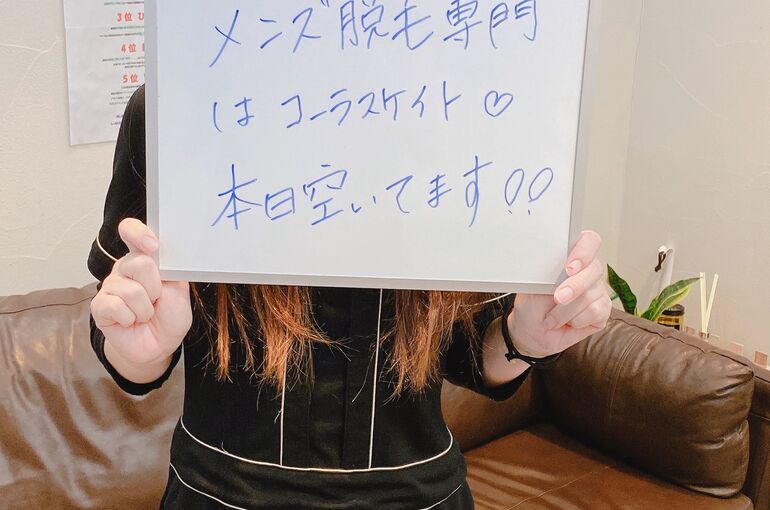 3位 ひ
4位
5位
メンズ脱毛専門
は コーラスケイト♡
本日空いてます!!